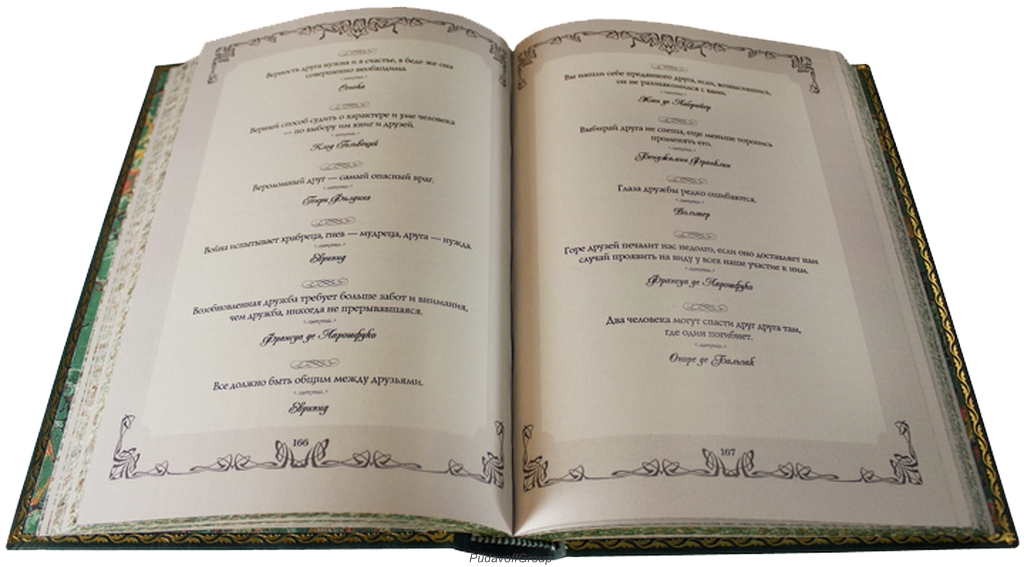 Верность друга нужна и в счастье, в беде же она
совершенно необходима.
Сенека
Верный способ судить о характере и уме человека
— по выбору им книг и друзей.
Клод Гельвеций
Вероломный друг — самый опасный враг.
Генри Филдинг
Война испытывает храбреца, гнев — мудреца, друга — нужда.
Еврипид
Возобновленная дружба требует больше забот и внимания,
чем дружба, никогда не прерывавшаяся.
Франсуа де Ларошфуко
Все должно быть общим между друзьями.
Еврипид
166
Вы нашли себе преданного друга, если, возвысившись,
он не раззнакомился с вами.
Жан де Лабрюйер
Выбирай друга не спеша, еще меньше торопись
променять его.
Бенджамин Франклин
Глаза дружбы редко ошибаются.
Вольтер
Горе друзей печалит нас недолго, если оно доставляет нам
случай проявить на виду у всех наше участие к ним.
Франсуа де Ларошфуко
Два человека могут спасти друг друга там,
где один погибнет.
Оноре де Бальзак
167
PudavoffGroup